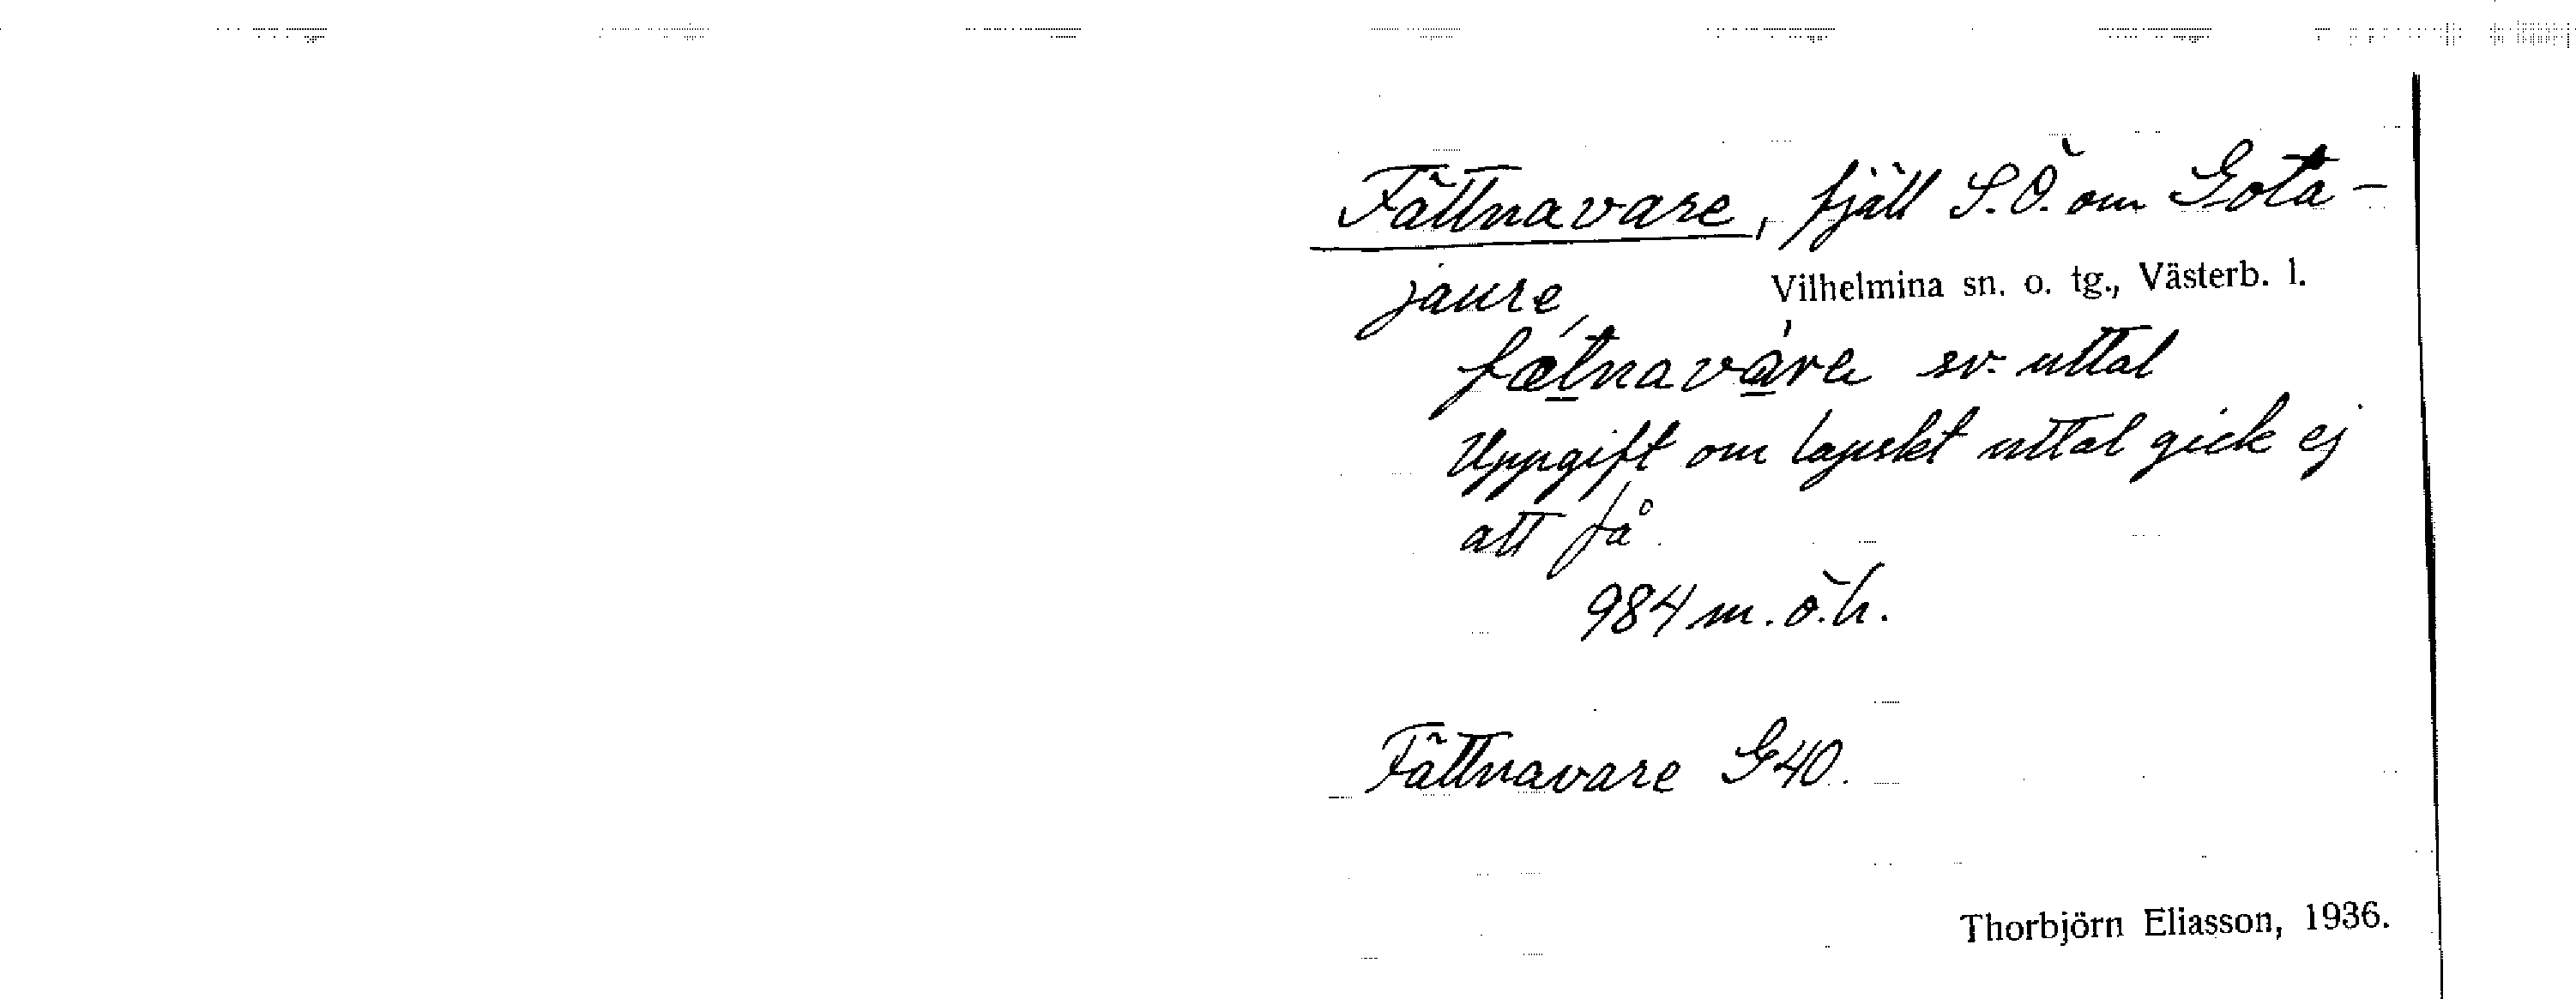 Fättnavare, fjäll S.Ö. om Gota-
jaure
Vilhelmina sn. o. tg., Västerb. l.
fætnavare sv. uttal
Uppgift om lapskt uttal gick ej
att få.
984 m.ö.h.
Fättnavare G40.
Thorbjörn Eliasson, 1936.